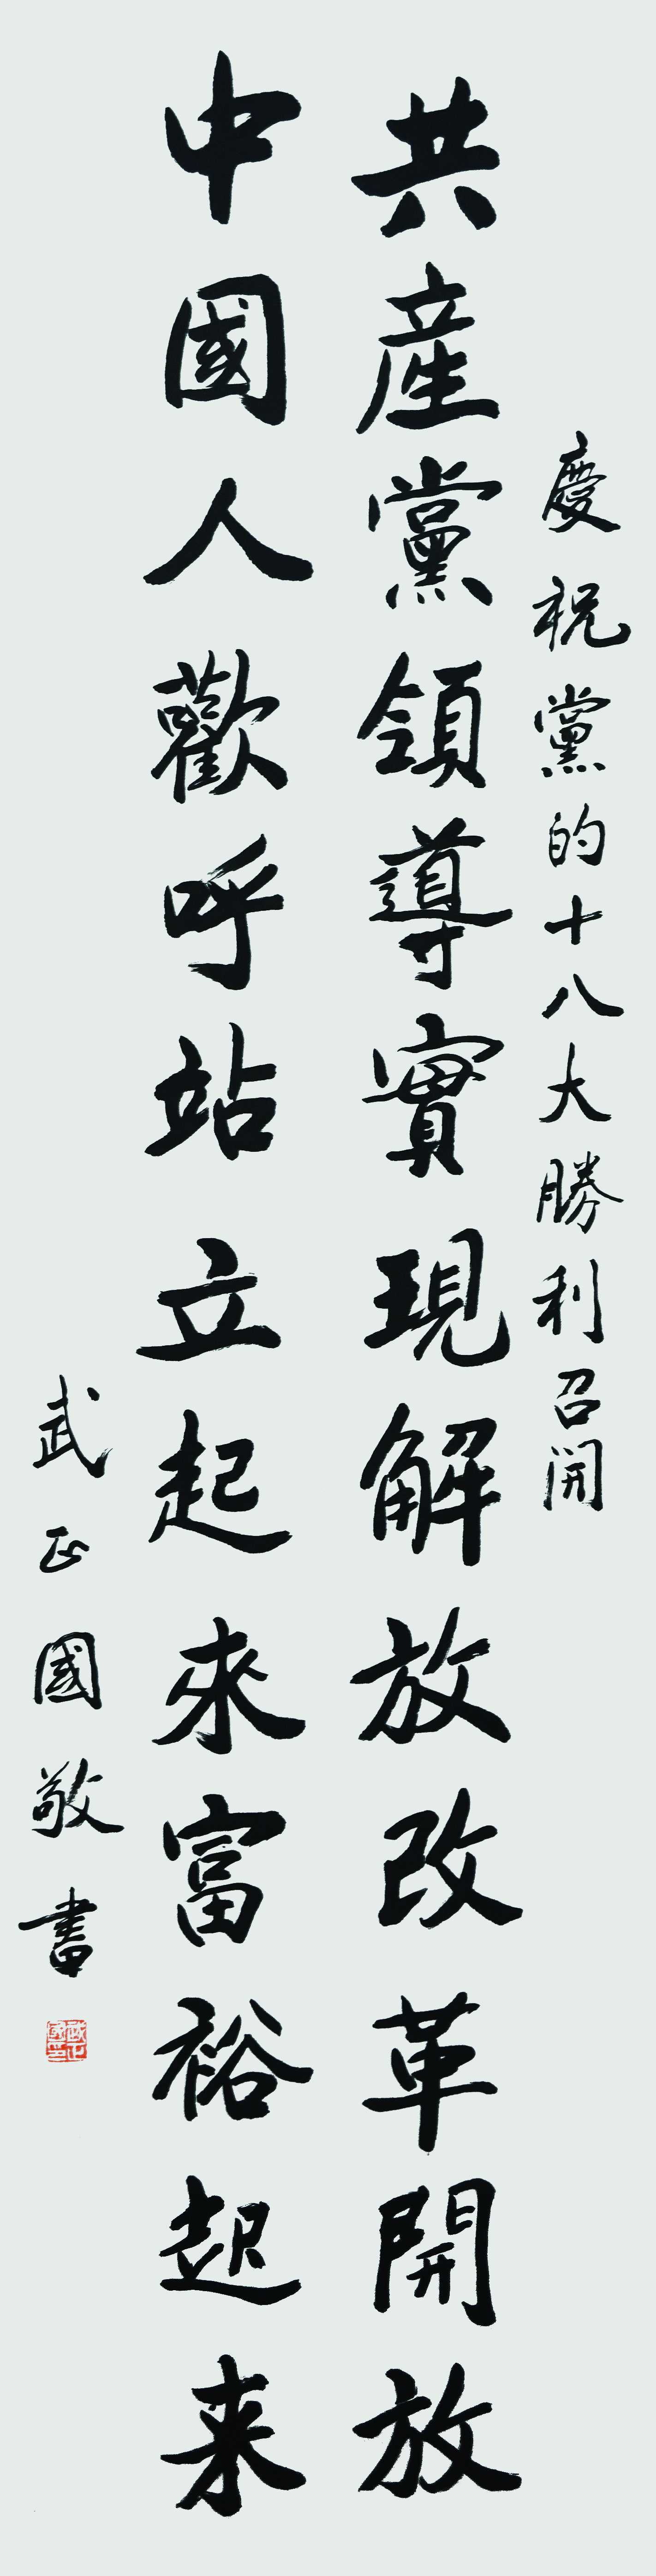 慶祝黨的十八大勝利召開
共產黨領導實現解放改革開放
中國人歡呼站立起來富裕起来
武正國敬書